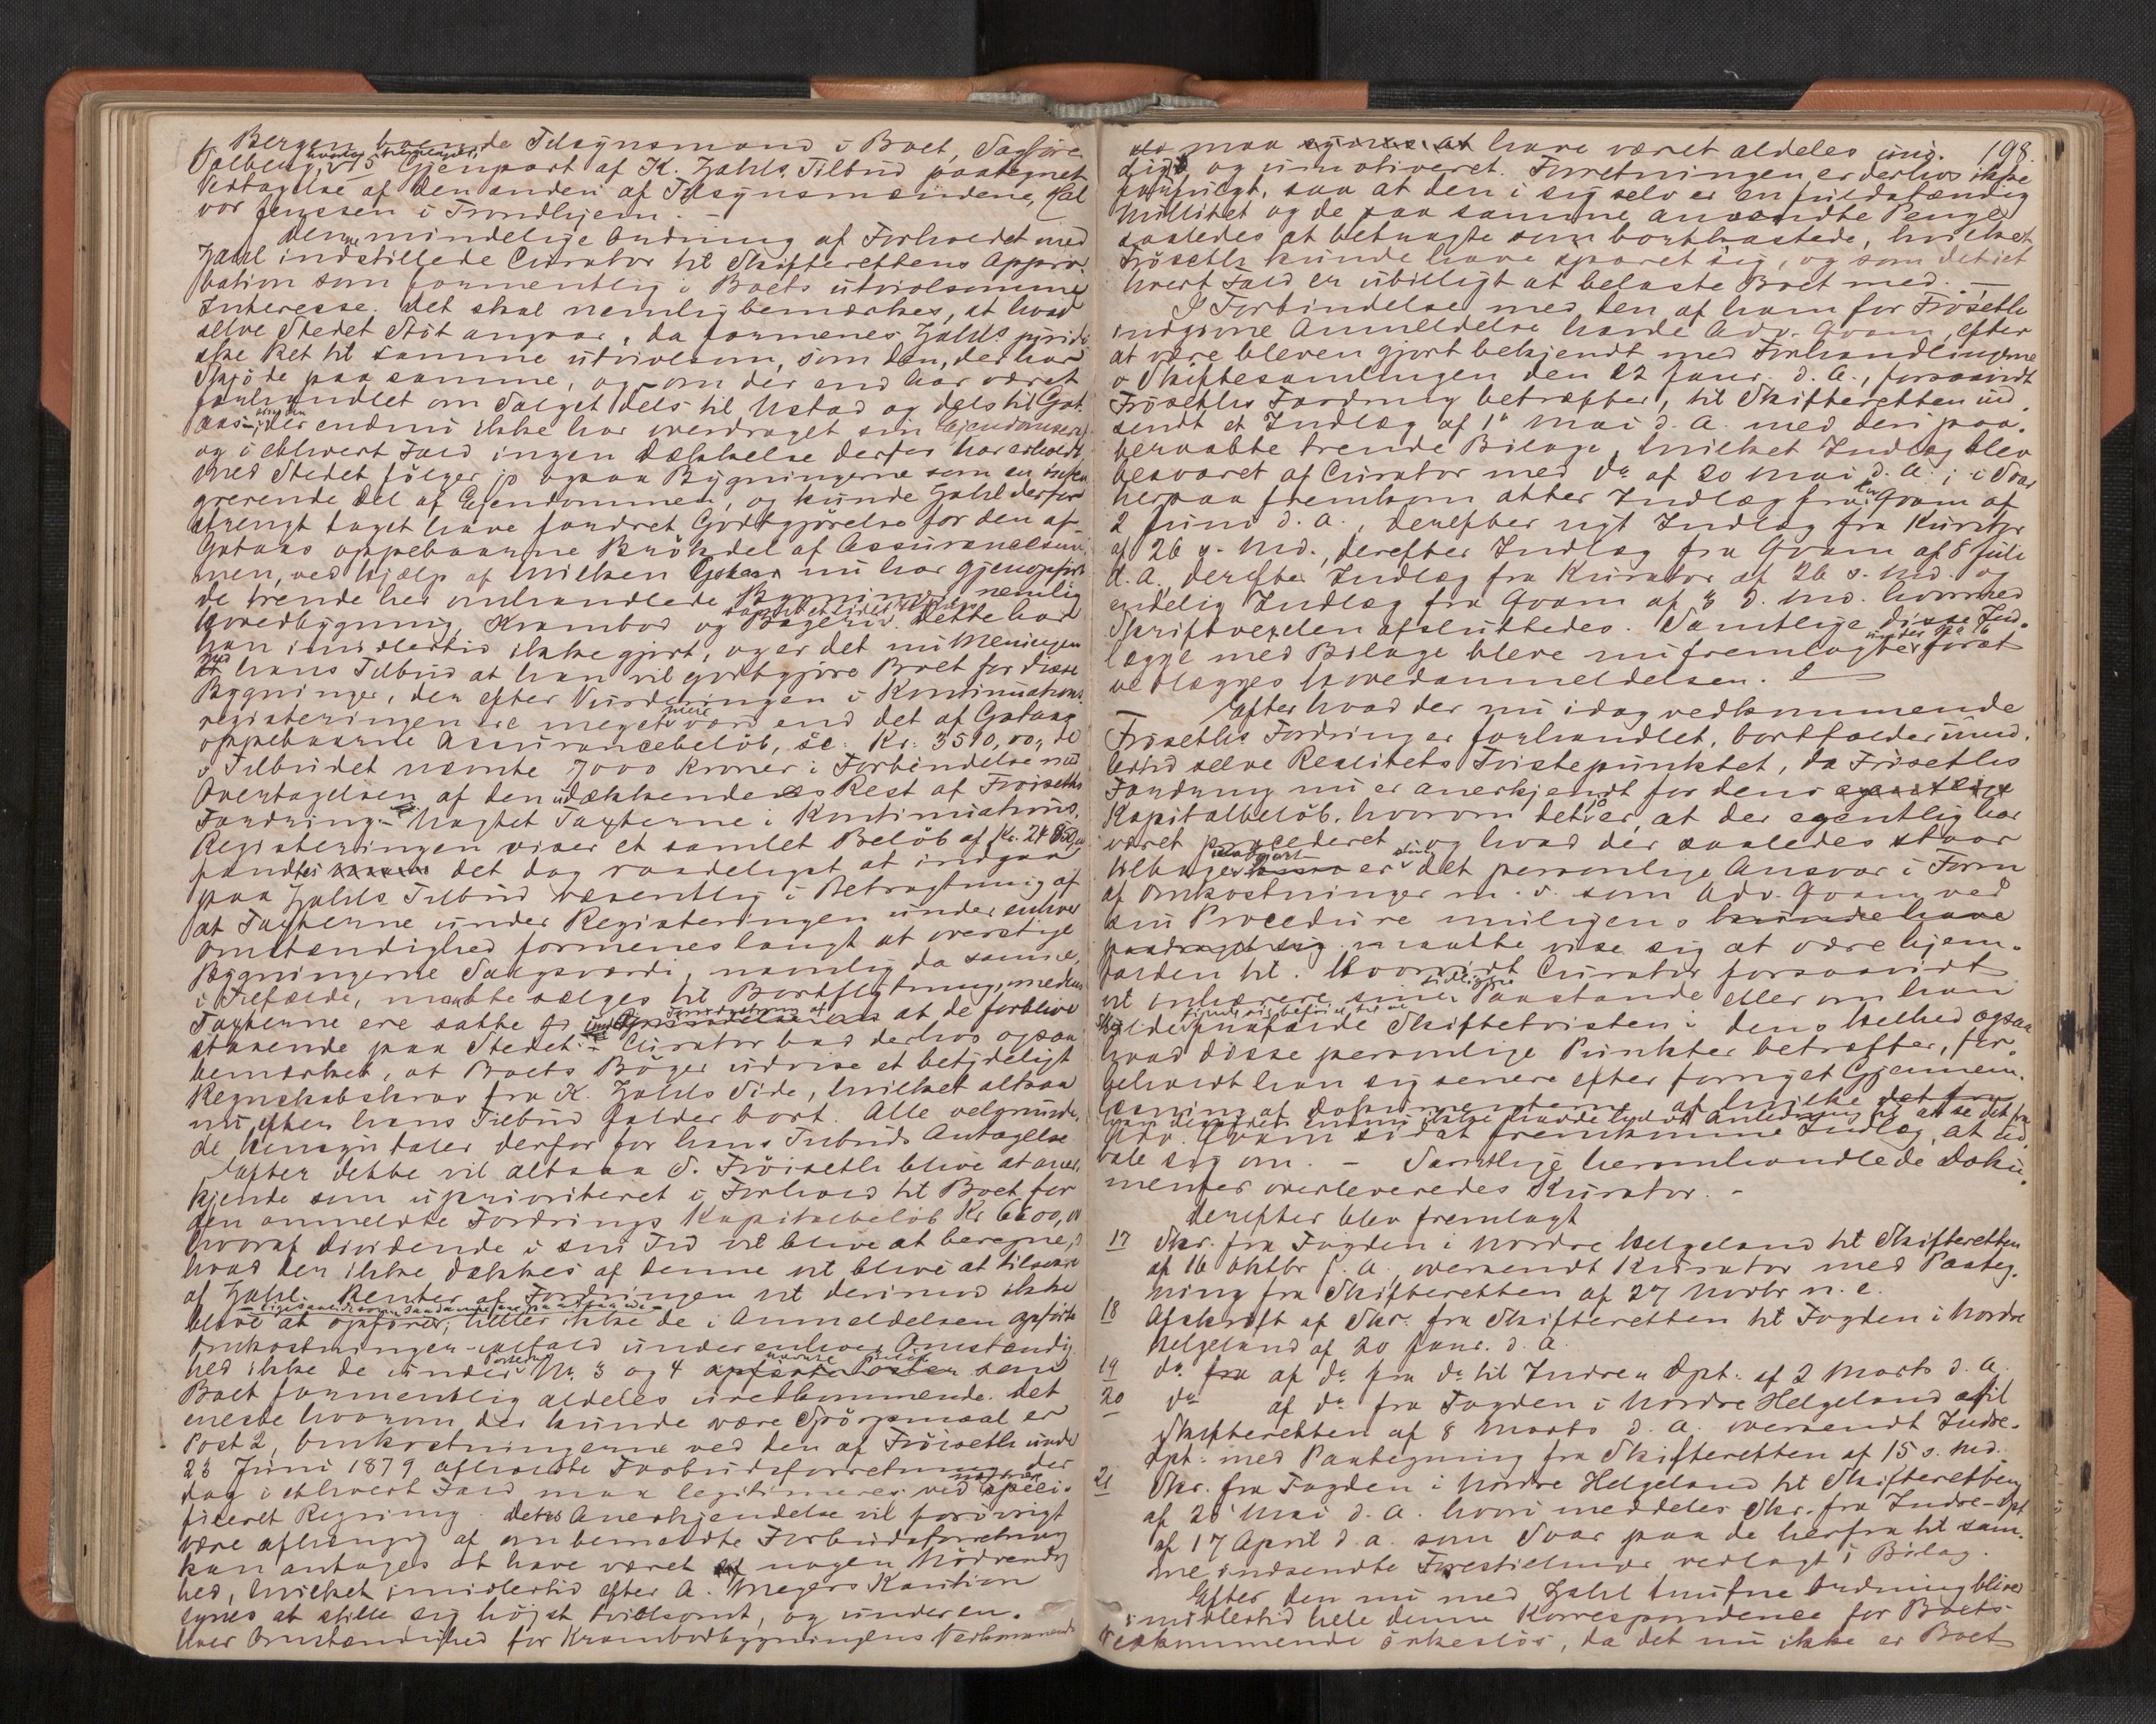 i Bergen boende Tilsynsmand i Boet, Sagfører
Valberg, Gjenpart af K. Zahls Tilbud paategnet
Vedtagelse af den anden af Tilsynsmændene, Hal
vor Jenssen i Trondhjem. –
Denne mindelige Ordning af Forholdet med
Zahl indstillede Curator til Skifterettens Appro-
bation som formentlig i Boets utvivlsomme
Interesse. Det skal nemlig bemærkes, at hvad
selve Stedet Støt angaar, da formenes Zahls juridi
ske Ret til samme utvivlsom, som den, der har
Skjøde paa samme, og om der end har været
forhandlet om Salget dels til Ustad og dels til Got
aas der endnu ikke har overdraget sin Eiendomsret
og i ethvert Fald ingen Dækkelse derfor har erholdt.
Med Stedet følger jo ogsaa Bygningerne som en inte
grerende Del af Eiendommen, og kunde Zahl derfor
strengt taget have fordret Godtgjørelse for den af
Gotaas oppebaarne Brøkdel af Assurancesum
men, ved Hjælp af hvilken Gotaas nu har gjenopført
de trende her omhandlede Bygninger nemlig
Hovedbygning, Krambod og Bageri. Dette har
han imidlertid ikke gjort, og er det nu Meningen
med hans Tilbud at han vil godtgjøre Boet for disse
Bygninger, der efter Vurderingen i Kontinuations
registeringen ere meget mere værd end det af Gotaas
oppebaarne Assurancebeløb, sc. Kr. 3510,00, de
i Tilbudet nævnte 7000 Kroner i Forbindelse med
Overtagelsen af den udækkende Rest af Frøiseths
Fordring. – Uagtet Taxterne i Kontinuations
Registeringen viser et samlet Beløb af Kr.
fandtes det dog raadeligst at indgaa
paa Zahls Tilbud væsentlig i Betragtning af
at Taxterne under Registeringen under enhver
Omstændighed formenes langt at overstige
Bygningerne Salgsværdi, nemlig da samme,
i Tilfælde, maatte sælges til Bortflytning, medens
Taxterne ere satte under Forudsætning af at de forblive
staaende paa Stedet. – Curator bad derhos ogsaa
bemærket, at Boets Bøger udvise et betydeligt
Regnskabskrav fra K. Zahls Side, hvilket altsaa
nu efter hans Tilbud falder bort. Alle velgrunde
de Hensyn taler derfor for hans Tilbuds Antagelse
Efter dette vil altsaa S. Frøiseth blive at aner-
kjende som uprioriteret i Forhold til Boet for
den anmeldte Fordrings Kapitalbeløb Kr 6600,00
hvoraf Dividende i sin Tid vil blive at beregne,
hvad der ikke dækkes af denne vil blive at tilsvare
af Zahl. Renter af Fordringen vil derimod ikke
blive at opføres, heller ikke de i Anmeldelsen opførte
Omkostninger – ialfald under enhver Omstændig
hed ikke de under Posterne Nr. 3 og 4 som
Boet formentlig aldeles uvedkommende. Det
eneste hvorom der kunde være Spørgsmaal er
Post 2, Omkostningerne ved den af Frøiseth under
23 Juni 1879 afholdte Forbudsforretning der
dog i ethvert Fald maa legitimeres ved nærmere speci-
ficeret Regning. Dettes Anerkjendelse vil forøvrigt
være afhængig af om bemeldte Forbudsforretning
kan antages at have været af nogen Nødvendig
hed, hvilket imidlertid efter A. Meyers Kaution
synes at stille sig høist tvilsomt, og under en-
hver Omstændighed for Krambodbygningens Vedkommende
198.
maa synes at have været aldeles unø-
dig, og umotiveret. Forretningen er derhos ikke
forfulgt, saa at den i sig selv er en fuldstændig
Nullitet og de paa samme anvendte Penge
saaledes at betragte som bortkastede, hvilket
Frøiseth kunde have sparet sig, og som det i et
hvert Fald er ubilligt at belaste Boet med. –
I Forbindelse med den af ham for Frøiseth
indgivne Anmeldelse havde Adv. Qvam, efter
at være bleven gjort bekjendt med Forhandlingerne
i Skiftesamlingen den 22 Janr. d. A., forsaavidt
Frøiseths Fordring betræffer, til Skifteretten ind
sendt et Indlæg af 1ste Mai d. A. med deri paa-
beraabte trende Bilage, hvilket Indlæg blev
besvaret af Curator med Do af 20 Mai d. A.; i Svar
herpaa fremkom atter Indlæg fra Qvam af
2 Juni d. A., derefter nyt Indlæg fra Kurator
af 26 s. Md., derefter Indlæg fra Qvam af 8 Juli
d. A., derefter Indlæg fra Kurator af 26 s. Md. og
endelig Indlæg fra Qvam af 3 d. Md. hvormed
Skriftvexlen afsluttedes. Samtlige disse Ind-
lægge med Bilage bleve nu fremlagte under No 16 forat
vedlægges Hovedanmeldelsen.
Efter hvad der nu idag vedkommende
Frøiseths Fordring er forhandlet, bortfalder imid-
lertid selve Realitets Tvistepunktet, da Frøiseths
Fordring nu er anerkjendt for dens egentlige
Kapitalbeløb, hvorom det jo er, at der egentlig har
været procederet og hvad der saaledes staar
tilbage er det personlige Ansvar i Form
af Omkostninger m. v. som Adv. Qvam ved
sin Procedure muligens kunde have
paadraget sig maatte vise sig at være hjem-
falden til. Hvorvidt Curator forsaavidt
vil inhærere sine tidligere Paastande eller om han
frafalde Skiftetvisten i dens Helhed ogsaa
hvad disse personlige Punkter betræffer, for-
beholdt han sig senere efter fornyet Gjennem-
læsning af Dokumenterne, af hvilke det fra
han desuden endnu ikke havde havt Anledning til at se det fra
Adv. Qvam sidst fremkomne Indlæg, at ud-
tale sig om. – Samtlige heromhandlede Doku-
menter overleveredes Kurator. –
Derefter blev fremlagt
17 Skr. fra Fogden i Nordre Helgeland til Skifteretten
af 16 Oktbr f. A., oversendt Kurator med Paateg-
ning fra Skifteretten af 27 Novbr n. e.
18 Afskrift af Skr. fra Skifteretten til Fogden i Nordre
Helgeland af 20 Janr. d. A.
19 Do fra af Do fra Do til Indre Dpt. af 2 Marts d. A.
20 Do af Do fra Fogden i Nordre Helgeland til
Skifteretten af 8 Marts d. A. oversendt Indre-
Dpt. med Paategning fra Skifteretten af 15 s. Md.
21 Skr. fra Fogden i Nordre Helgeland til Skifteretten
af 25 Mai d. A. hvori meddeles Skr. fra Indre-Dpt
af 17 April d. a. som Svar paa de herfra til sam-
me indsendte Forestillinger vedlagt 1 Bilag.
Efter den nu med Zahl trufne Ordning bliver
imidlertid hele denne Korrespondence for Boets
Vedkommende ørkesløs, da det nu ikke er Boet